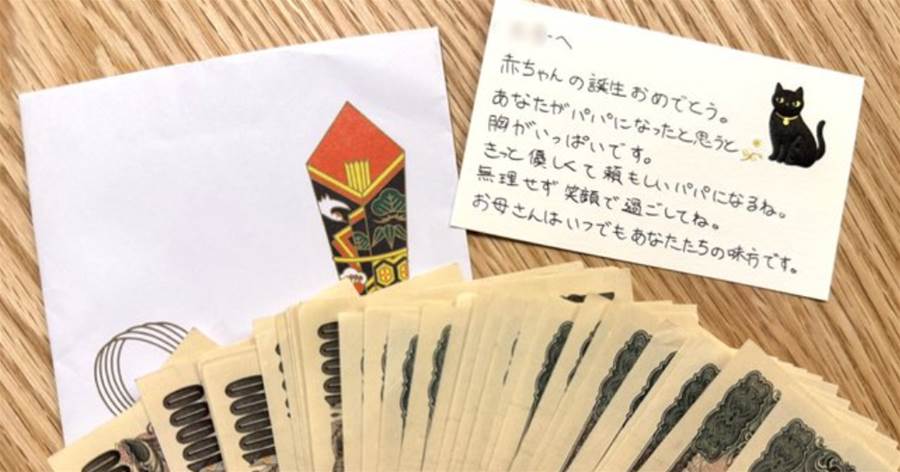 へ
赤ちゃんの誕生おめでとう。
あなたがパパになったと思うと
胸がいっぱいです。
きっと優しくて頼もしいパパになるね。
無理せず笑顔で過ごしてね。
お母さんはいつでもあなたたちの味方です。